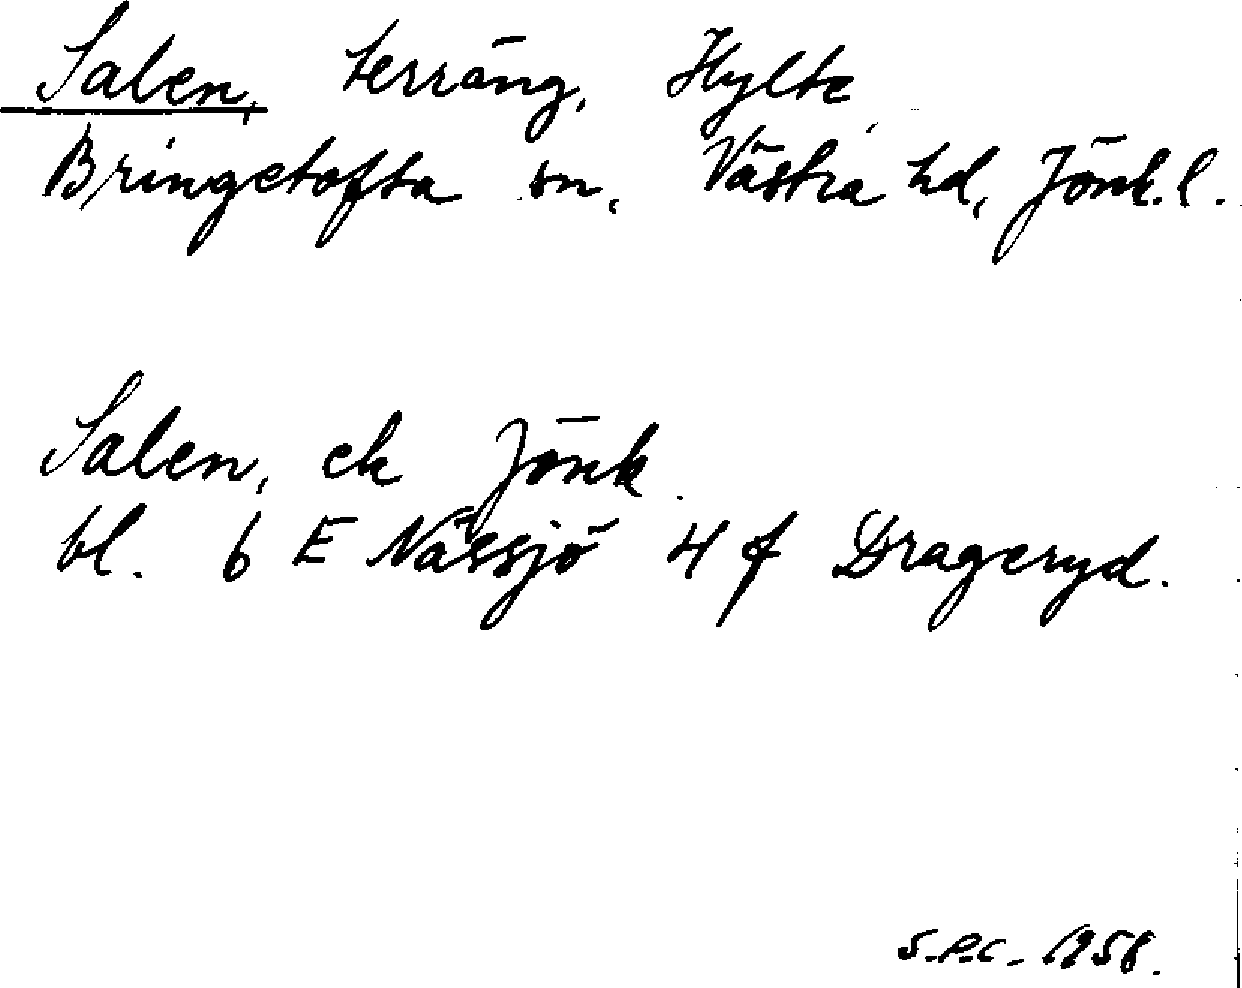 Salen, terräng, Hylte,
Bringetofta sn, Västra hd, Jönk. l.
Salen, ek Jönk.
bl. 6 E Nässjö 4 f Drageryd.
S.P.C. 1958.